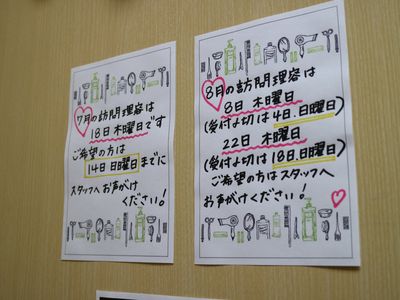 7月の訪問理容は
18日 木曜日です
ご希望の方は
14日 日曜日までに
スタッフへお声がけ
ください!
8月の訪問理容は
8日 木曜日
(受付〆切は4日.日曜日)
22日 木曜日
(受付〆切は18日.日曜日)
ご希望の方はスタッフへ
お声がけください!